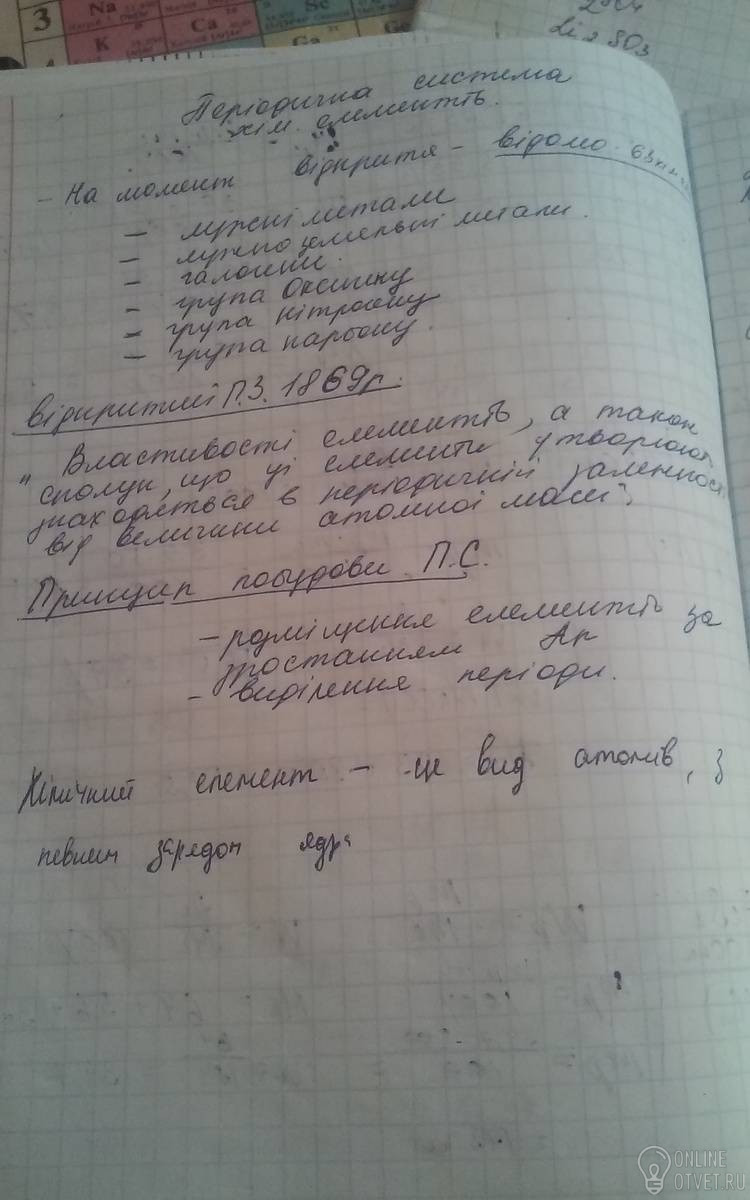 3 Na Sc
K Ca
Ga Ge
2SO4
Li2SO3
Періодична система
хім. елементів.
- На момент відкриття - відомо 63
- лужні метали
- лужноземельні метали.
- галогени.
- група Оксигену
- група Нітрогену
- група Карбону.
Відкритий П.З. 1869р.
" Властивості елементів, а також
сполук, що ці елементи утворюють
знаходяться в періодичній залежності
від величини атомної маси"
Принцип побудови П.С.
- розміщення елементів за
зростанням Ar
- виділення періоди.
Хімічний елемент - це вид атомів, з
певним зарядом ядра
ONLINE
OTVET.RU